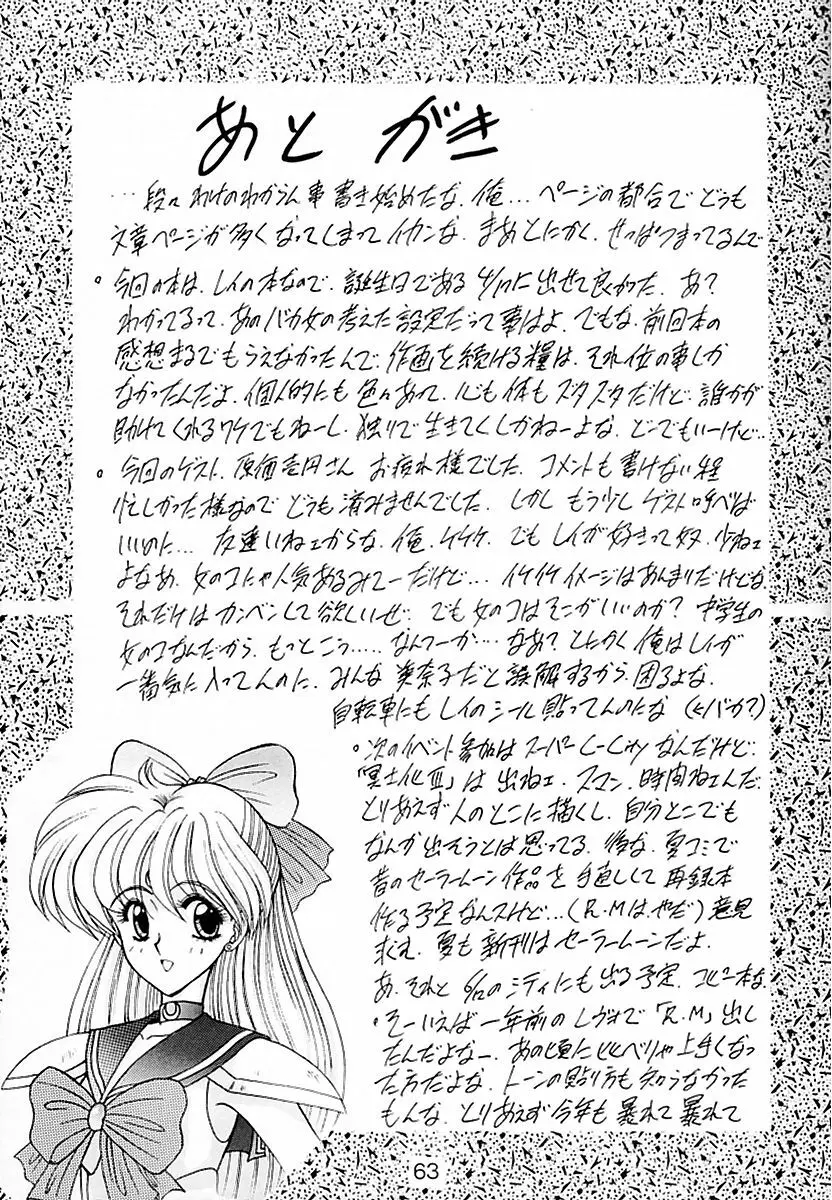 あとがき
…段々わけのわからん事書き始めたな、俺…ページの都合でどうも
文章ページが多くなってしまってイカンな。まあとにかく、せっぱつまってるんで
。今回の本は、レイの本なので、誕生日である4/17に出せて良かった。あ?
わかってるって、あのバカ女の考えた設定だって事はよ。でもな、前回本の
感想まるでもらえなかったんで、作画を続ける糧は、それ位の事しか
なかったんだよ。個人的にも色々あって、心も体もズタズタだけど、誰かが
助けてくれるワケでもねーし、独りで生きてくしかねーよな。どーでもいーけど…
。今回のゲスト、原価壱円さん お疲れ様でした。コメントも書けない程
忙しかった様なので どうも済みませんでした。しかし もう少し ゲスト呼べれば
いいのに… 友達いねェからな、俺。ケケケ。でも レイが好きって奴、少ねェ
よなあ。女のコにゃ人気あるみてーだけど… イケイケイメージはあんまりだけどな
それだけはカンベンして欲しいぜ。でも女のコはそこがいいのか? 中学生の
女のコなんだから、もっとこう……なんつーか…なあ? とにかく俺はレイが
一番気に入ってんのに、みんな 美奈子だと誤解するから、困るよな。
自転車にも レイのシール貼ってんのにな (←バカ?)
。次のイベント参加は スーパーC-City なんだけど、
「冥土化Ⅲ」は 出ねェ。スマン。時間ねェんだ。
とりあえず人のとこに描くし、自分とこでも
なんか出そうとは思ってる。 夏コミで
昔のセーラームーン作品を 手直しして 再録本
作る予定なんスけど…(R.Mはやだ) 意見
求む。夏も 新刊は セーラームーンだよ。
あ、それと 6/10の シティにも 出る予定。コピー本な。
。そーいえば 一年前の レヴォで「R.M」出し
たんだよなー。あの頃に比べりゃ上手くなっ
た方だよな。トーンの貼り方も 知らなかった
もんな。とりあえず 今年も 暴れて 暴れて
63